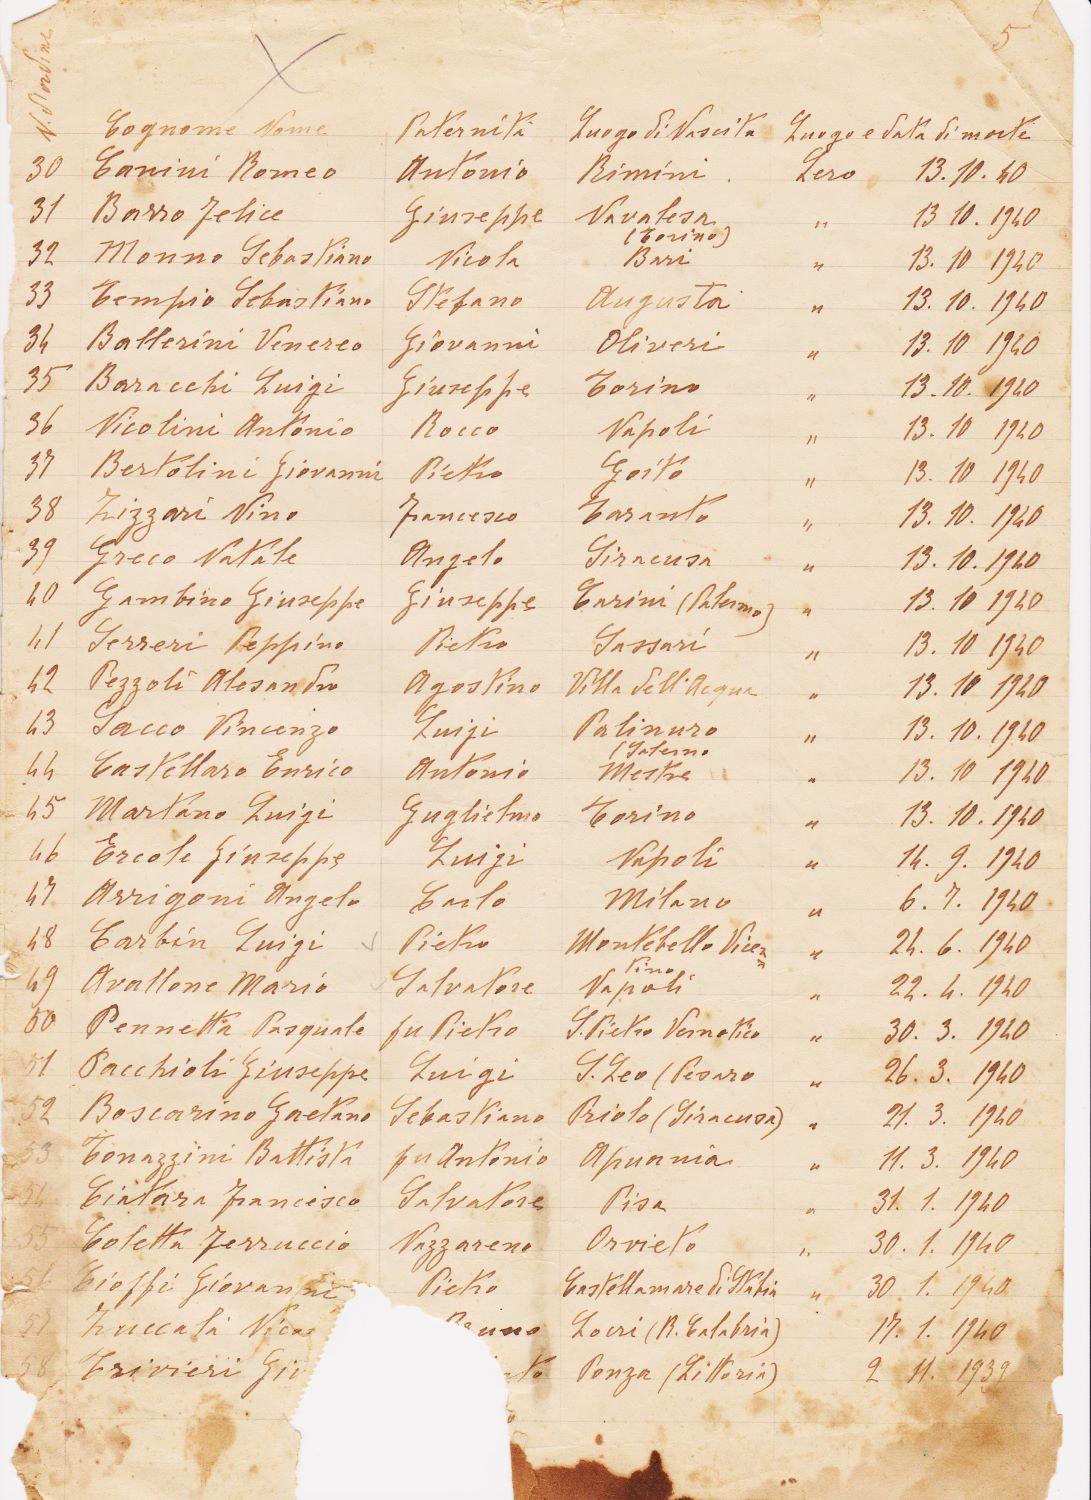 5
N. d'ordine
Cognome Nome Paternità Luogo di Nascita Luogo e data di morte
30 Canini Romeo Antonio Rimini Lero 13.10.40
31 Barro Felice Giuseppe Navalesa (Torino) " 13 10.1940
32 Monno Sebastiano Nicola Bari " 13.10 1940
33 Tempio Sebastiano Stefano Augusta " 13.10.1940
34 Ballerini Venereo Giovanni Oliveri " 13.10 1940
35 Baracchi Luigi Giuseppe Torino " 13.10.1940
36 Nicolini Antonio Rocco Napoli " 13.10 1940
37 Bertolini Giovanni Pietro Goito " 13.10 1940
38 Lizzari Nino Francesco Taranto " 13.10.1940
39 Greco Natale Angelo Siracusa " 13.10.1940
40 Gambino Giuseppe Giuseppe Carini (Palermo) " 13.10 1940
41 Serreri Peppino Pietro Sassari " 13.10 1940
42 Pezzoli Alesandro Agostino Villa dell'Acqua " 13.10 1940
43 Sacco Vincenzo Luigi Palinuro (Salerno " 13.10.1940
44 Castellaro Enrico Antonio Mestre " 13.10 1940
45 Martano Luigi Guglielmo Torino " 13.10.1940
46 Ercole Giuseppe Luigi Napoli " 14.9.1940
47 Arrigoni Angelo Carlo Milano " 6.7.1940
48 Carbin Luigi Pietro Montebello Vicentino " 24.6.1940
49 Avallone Mario Salvatore Napoli " 22.4.1940
50 Pennetta Pasquale fu Pietro S. Pietro Vernotico " 30.3.1940
51 Pacchioli Giuseppe Luigi S. Leo (Pesaro " 26.3.1940
52 Boscarino Gaetano Sebastiano Priolo (Siracusa) " 21.3.1940
53 Tonazzini Battista fu Antonio Apuania " 11.3.1940
54 Ciatara Francesco Salvatore Pisa " 31.1.1940
55 Coletta Ferruccio Nazzareno Orvieto " 30.1.1940
56 Cioffi Giovanni Pietro Castellamare di Stabia " 30.1.1940
57 Zuccalà Locri (R. Calabria) 17.1.1940
58 Trivieri Ponza (Littoria) 2 11.1939